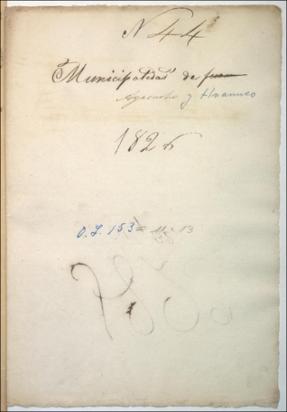 N 44
Municipalidad de
Ayacucho y Huanuco
1826
O.L. 153 = 
13